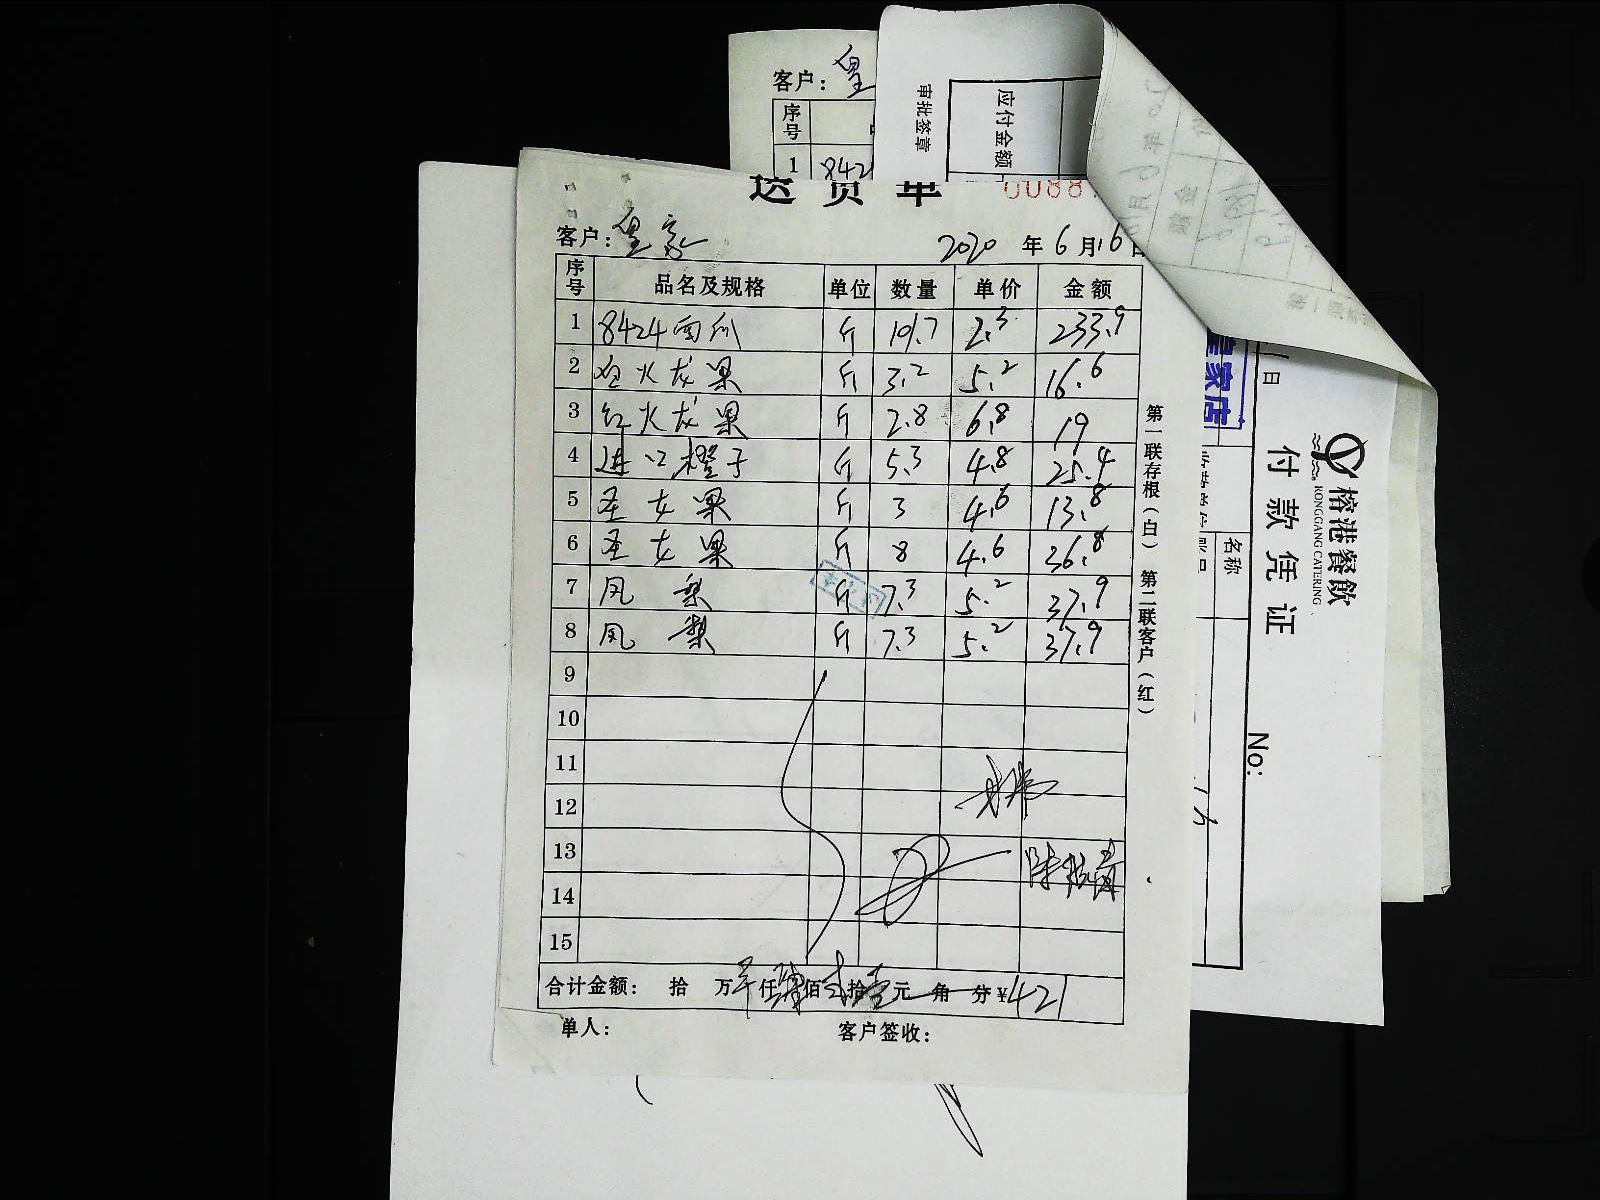 客户：皇
序号
1 842
审批签章
应付金额
送货单 0088
客户：皇家 2020年6月16日
序号 品名及规格 单位 数量 单价 金额
1 8424西瓜 斤 101.7 2.3 233.9
2 白火龙果 斤 3.2 5.2 16.6
3 红火龙果 斤 2.8 6.8 19
4 进口橙子 斤 5.3 4.8 25.4
5 圣女果 斤 3 4.6 13.8
6 圣女果 斤 8 4.6 36.8
7 凤梨 斤 7.3 5.2 37.9
8 凤梨 斤 7.3 5.2 37.9
9
10
11
12
13
14
15
合计金额： 拾 万 仟肆佰贰拾壹元 角 分¥421
单人： 客户签收：
第一联存根（白） 第二联客户（红）
皇家店
日
名称
付款凭证
榕港餐飲
RONGGANG CATERING
No: